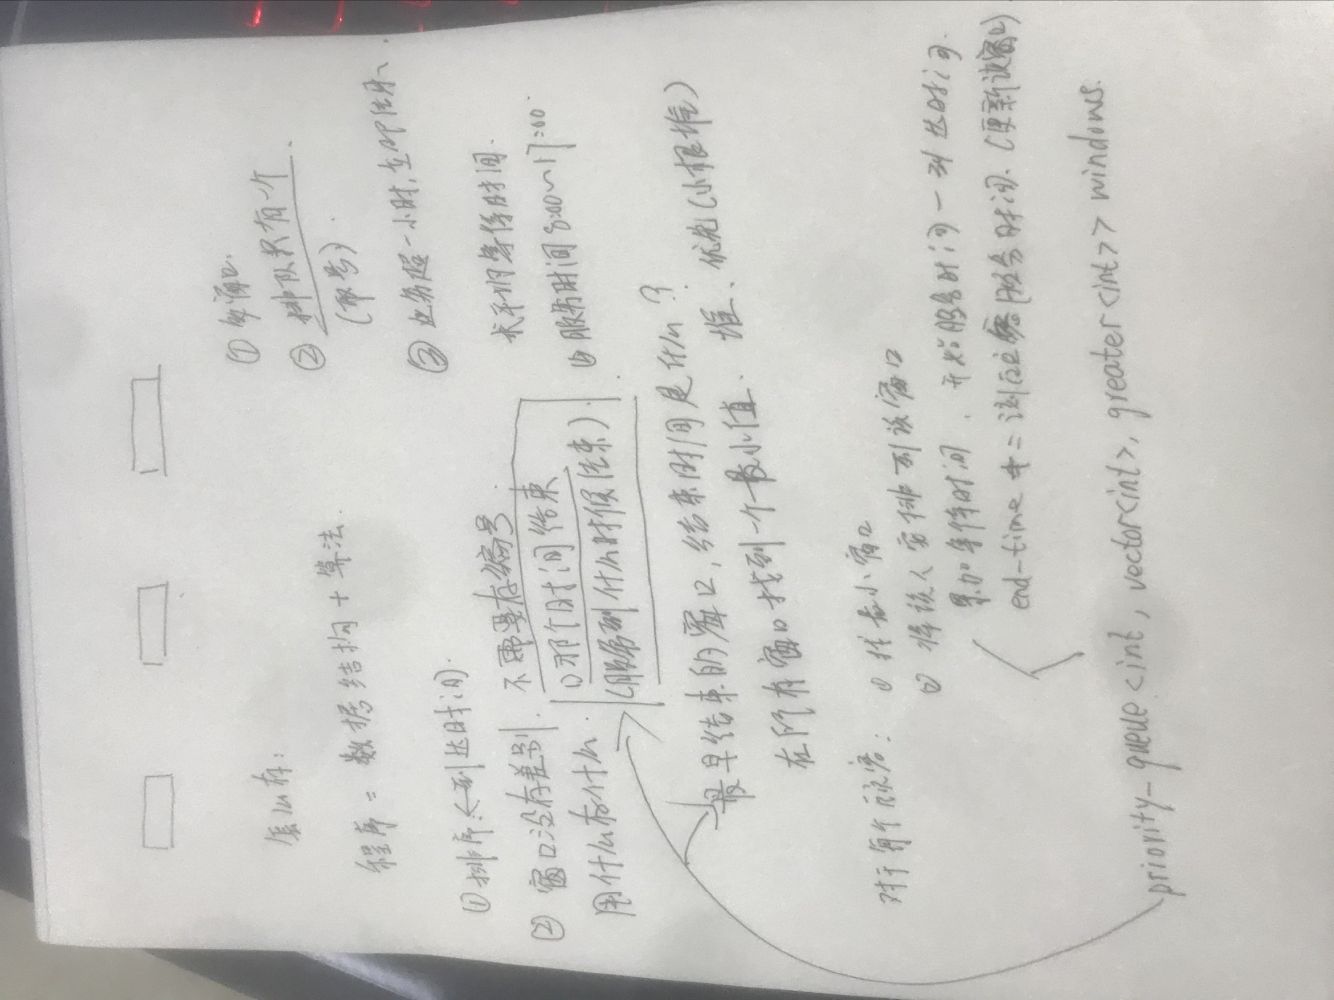 怎么存:
程序 = 数据结构 + 算法.
① 多窗口.
② 排队只有一个.
(取号).
③ 业务超一小时,立即结束.
求平均等待时间.
④ 服务时间 8:00~17:00.
① 排序.<到达时间>.
② 窗口没存差别. 不需要存编号.
用什么存什么.
① 那个时间结束
(服务到什么时候结束).
最早结束的窗口,结束时间是什么?
在所有窗口找到一个最小值. 堆、优先(小根堆)
对于每个顾客: ① 找最小窗口
② 将该人安排到该窗口
累加等待时间. 开始服务时间 - 到达时间.
end-time = 服务时间. (更新该窗口)
priority_queue<int, vector<int>, greater<int>> windows.